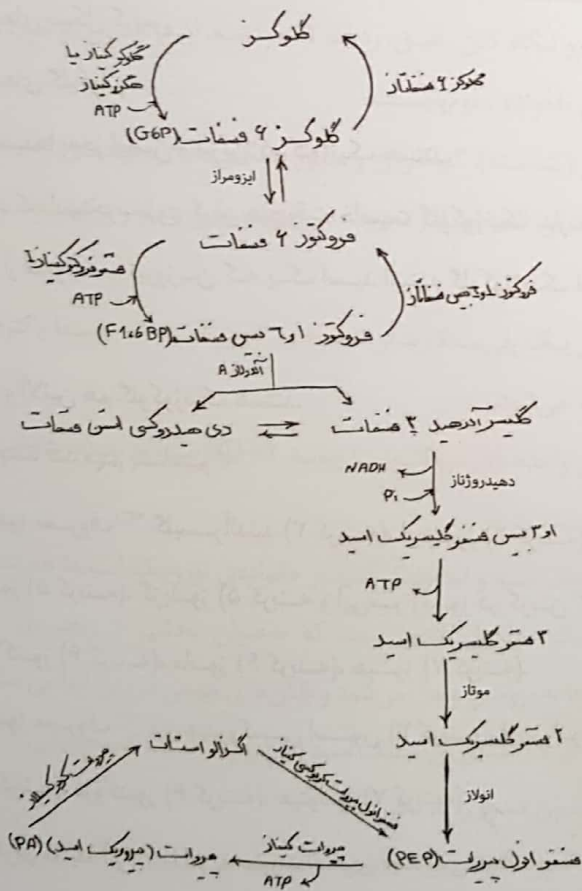 گلوکز
گلوکوکیناز یا
هگزوکیناز
ATP
گلوکز ۶ فسفاتاز
گلوکز ۶ فسفات (G6P)
ایزومراز
فروکتوز ۶ فسفات
فسفوفروکتوکیناز ۱
ATP
فروکتوز ۱و۶ بیس فسفاتاز
فروکتوز ۱و۶ بیس فسفات (F1,6BP)
آلدولاز A
دی هیدروکسی استن فسفات
گلیسرآلدهید ۳ فسفات
NADH
Pi
دهیدروژناز
۱و۳ بیس فسفوگلیسریک اسید
ATP
۳ فسفوگلیسریک اسید
موتاز
۲ فسفوگلیسریک اسید
انولاز
فسفو انول پیروات (PEP)
پیروات کیناز
ATP
پیروات (پیروویک اسید) (PA)
پیروات کربوکسیلاز
اگزالواستات
فسفوانول پیروات کربوکسی کیناز